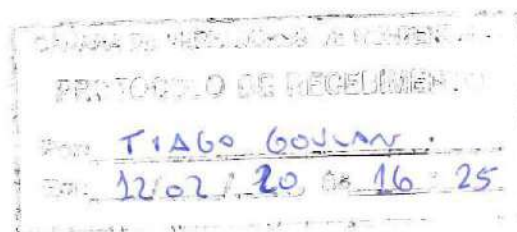 CÂMARA DE VEREADORES
PROTOCOLO DE RECEBIMENTO
Por: TIAGO
Em: 12/02/20 às 16:25